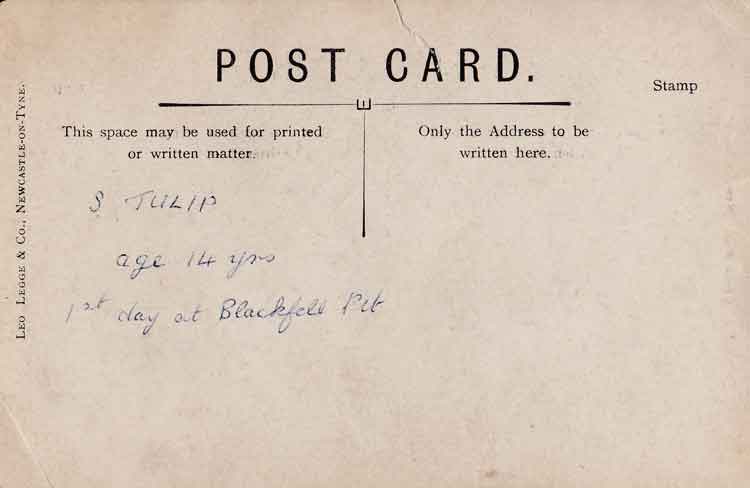 POST CARD.
Stamp
This space may be used for printed
or written matter.
Only the Address to be
written here.
LEO LEGGE & CO., NEWCASTLE-ON-TYNE.
S TULIP
age 14 yrs
1st day at Blackfell Pit